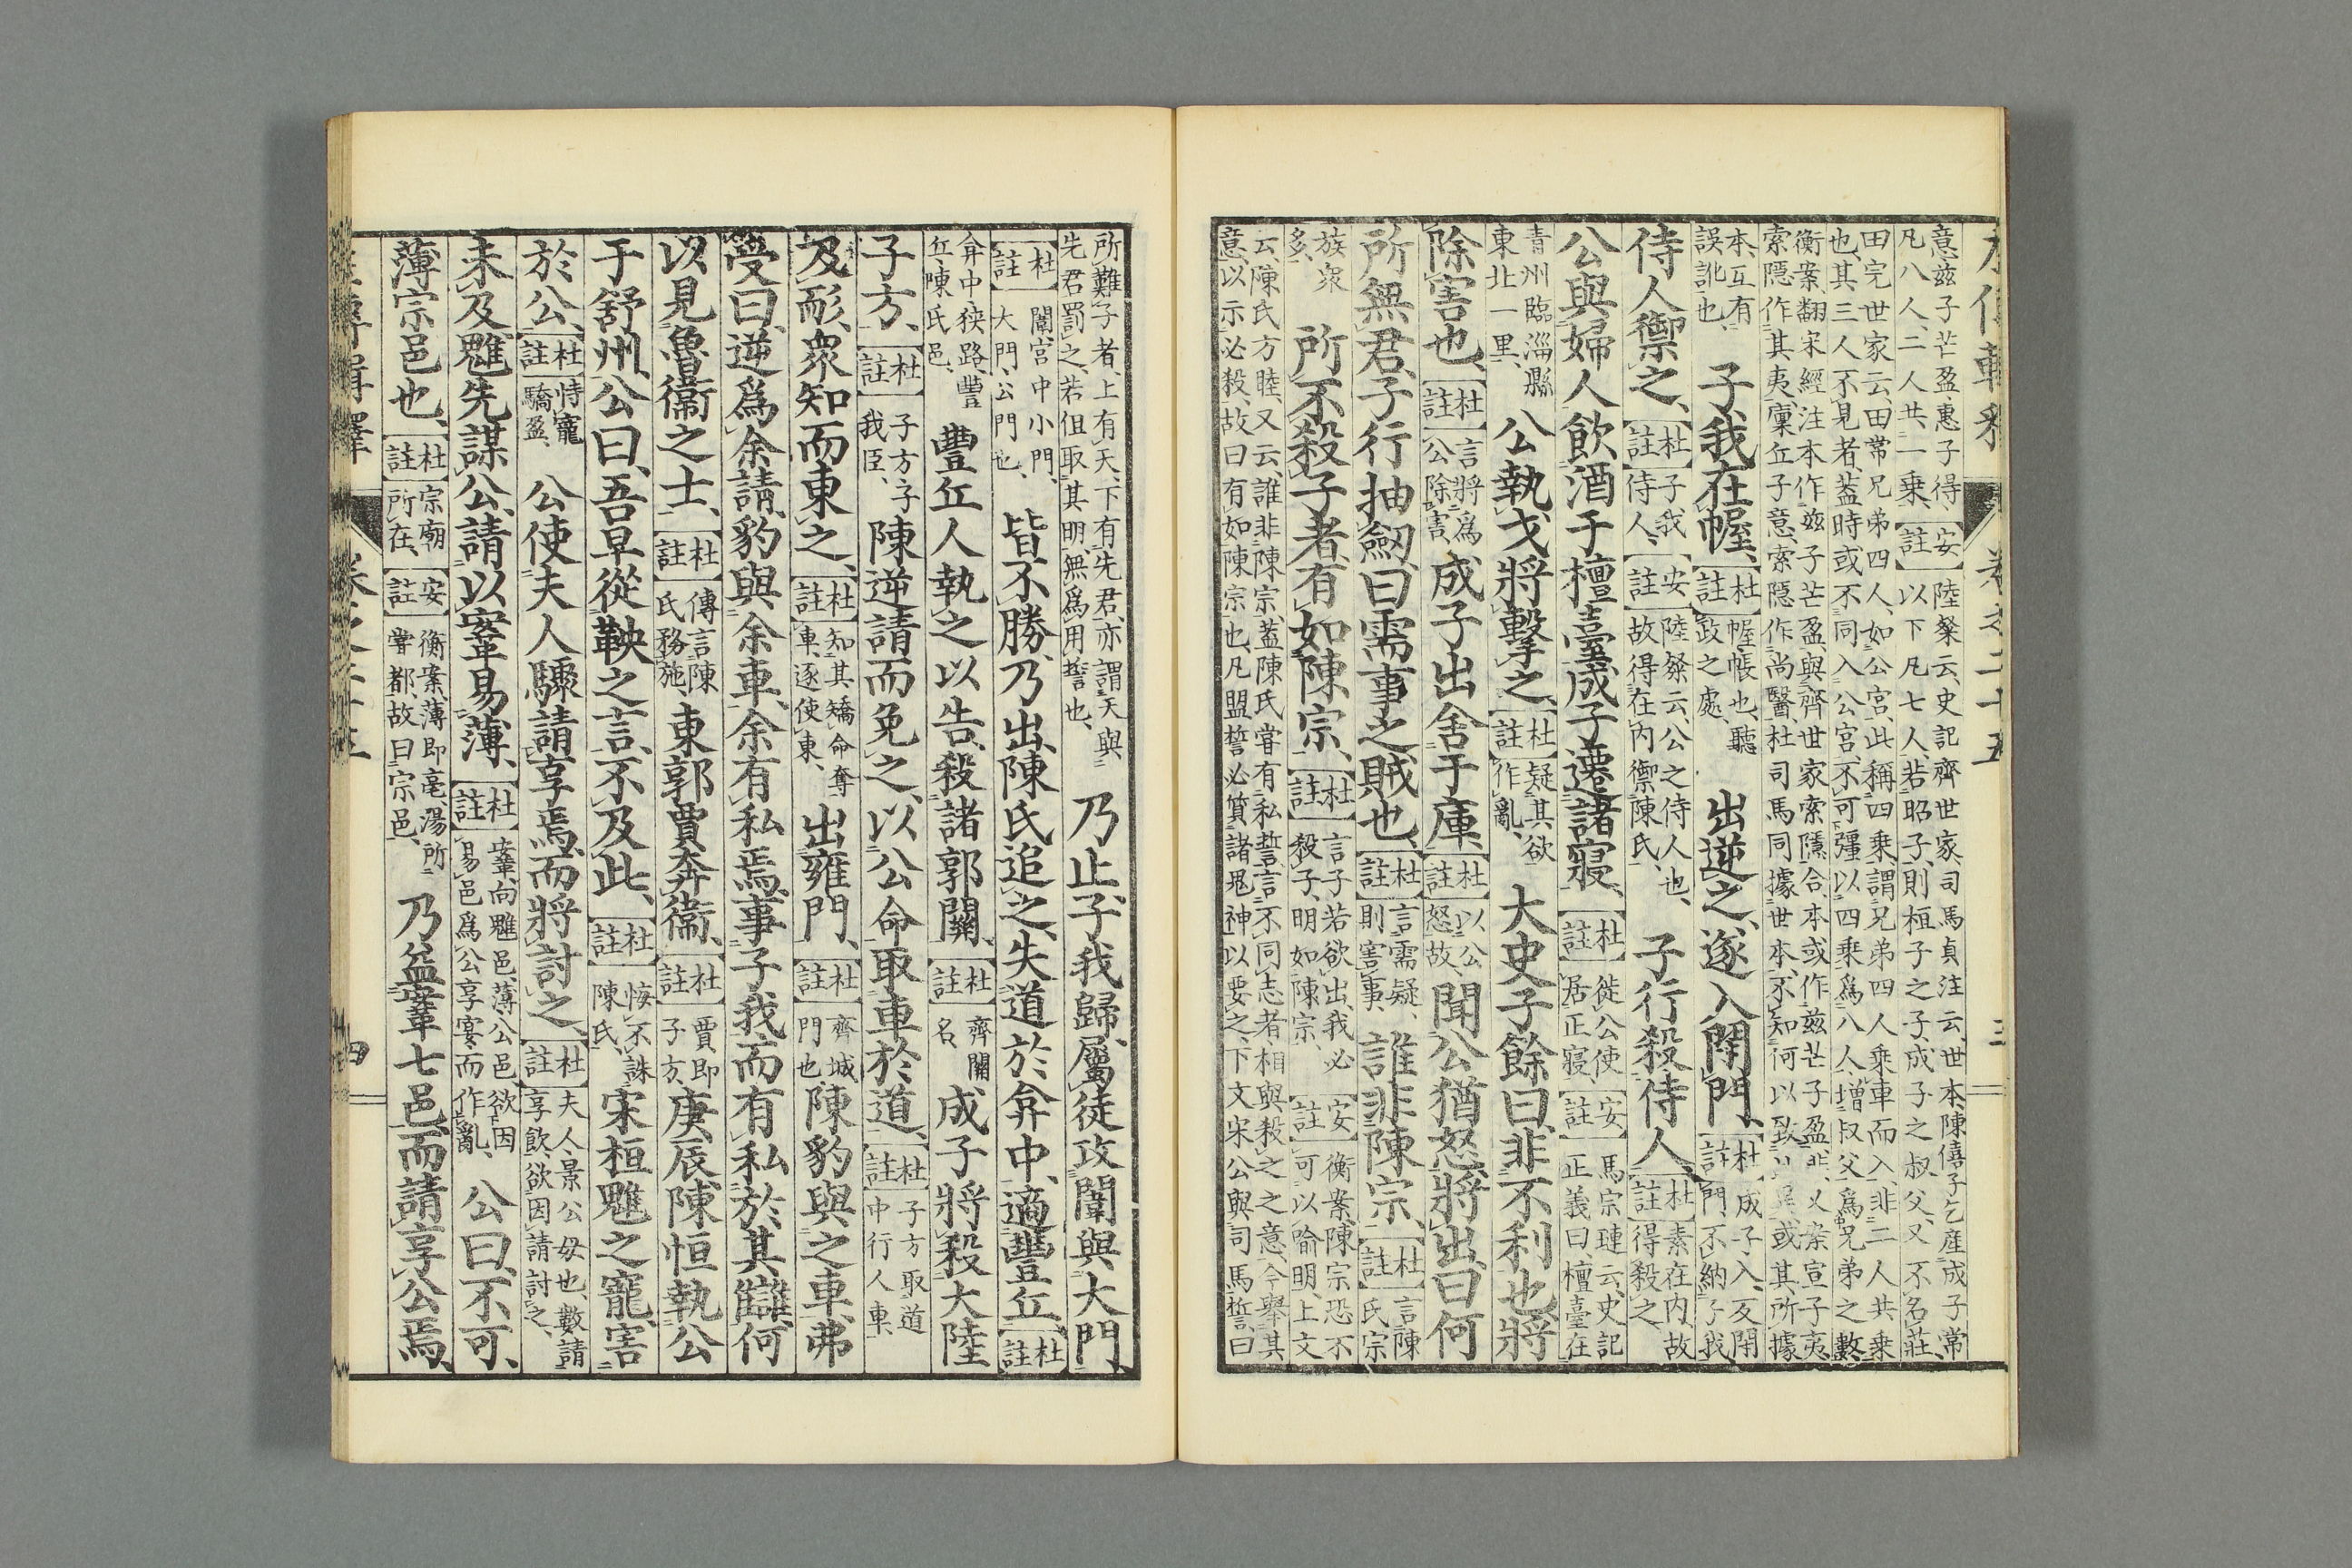 左傳輯釋 卷之二十五 三
意、茲子芒盈、惠子得、凡八人、二人共一乘、安註陸粲云、史記齊世家、司馬貞注云、世本、陳僖子乞產成子常、以下凡七人、若昭子、則桓子之子、成子之叔父、又不名莊、
田完世家云、田常兄弟四人、如公宮、此稱四乘、謂兄弟四人乘車而入、非二人共乘也、其三人不見者、蓋時或不同入公宮、不可彊以四乘爲八人、增叔父爲兄弟之數、
衡案、翻宋經注本作茲子芒盈、與齊世家索隱合、本或作茲芒子盈、非、又案、宣子夷、索隱作其夷、廩丘子意、索隱作尚醫、杜司馬同據世本、不知何以致異、或其所據
本、互有誤訛也 子我在幄、杜註幄帳也、聽政之處、出逆之、遂入閉門、杜註成子入、反閉門、不納子我、
侍人禦之、杜註子我侍人、安註陸粲云、公之侍人也、故得在內禦陳氏、子行殺侍人、杜註素在內、故得殺之
公與婦人飲酒于檀臺、成子遷諸寢、杜註徙公使居正寢、安註馬宗璉云、史記正義曰、檀臺在
青州臨淄縣東北一里、公執戈將擊之、杜註疑其欲作亂、大史子餘曰、非不利也、將
除害也、杜註言將爲公除害、成子出舍于庫、杜註以公怒故、聞公猶怒、將出、曰何
所無君、子行抽劒曰、需事之賊也、杜註言需疑、則害事、誰非陳宗、杜註言陳氏宗
族衆多、所不殺子者、有如陳宗、杜註言子若欲出、我必殺子、明如陳宗、安註衡案、陳宗恐不可以喻明、上文
云、陳氏方睦、又云、誰非陳宗、蓋陳氏嘗有私誓、言不同志者、相與殺之之意、今舉其意、以示必殺、故曰有如陳宗也、凡盟誓必質諸鬼神以要之、下文宋公與司馬誓曰
所難子者、上有天、下有先君、亦謂天與先君罰之、若但取其明、無爲用誓也、乃止、子我歸、屬徒攻闈與大門、
杜註闈宮中小門、大門、公門也、皆不勝、乃出、陳氏追之、失道於弇中、適豐丘、杜註
弇中、狹路、豐丘、陳氏邑、豐丘人執之以告、殺諸郭關、杜註齊關名、成子將殺大陸
子方、杜註子方、子我臣、陳逆請而免之、以公命取車於道、杜註子方取道中行人車、
及耏、衆知而東之、杜註知其矯命奪車、逐使東、出雍門、杜註齊城門也、陳豹與之車、弗
受曰、逆爲余請、豹與余車、余有私焉、事子我而有私於其讎、何
以見魯衞之士、杜註傳言陳氏務施、東郭賈奔衞、杜註賈、即子方、庚辰、陳恒執公
于舒州、公曰、吾早從鞅之言、不及此、杜註悔不誅陳氏、宋桓魋之寵、害
於公、杜註恃寵驕盈、公使夫人驟請享焉、而將討之、杜註夫人、景公母也、數請享飲、欲因請討之、
未及、魋先謀公、請以鞌易薄、杜註鞌、向魋邑、薄、公邑、欲因易邑、爲公享宴而作亂、公曰、不可、
薄宗邑也、杜註宗廟所在、安註衡案、薄即亳、湯所嘗都、故曰宗邑、乃益鞌七邑、而請享公焉、
左傳輯釋 卷之二十五 四